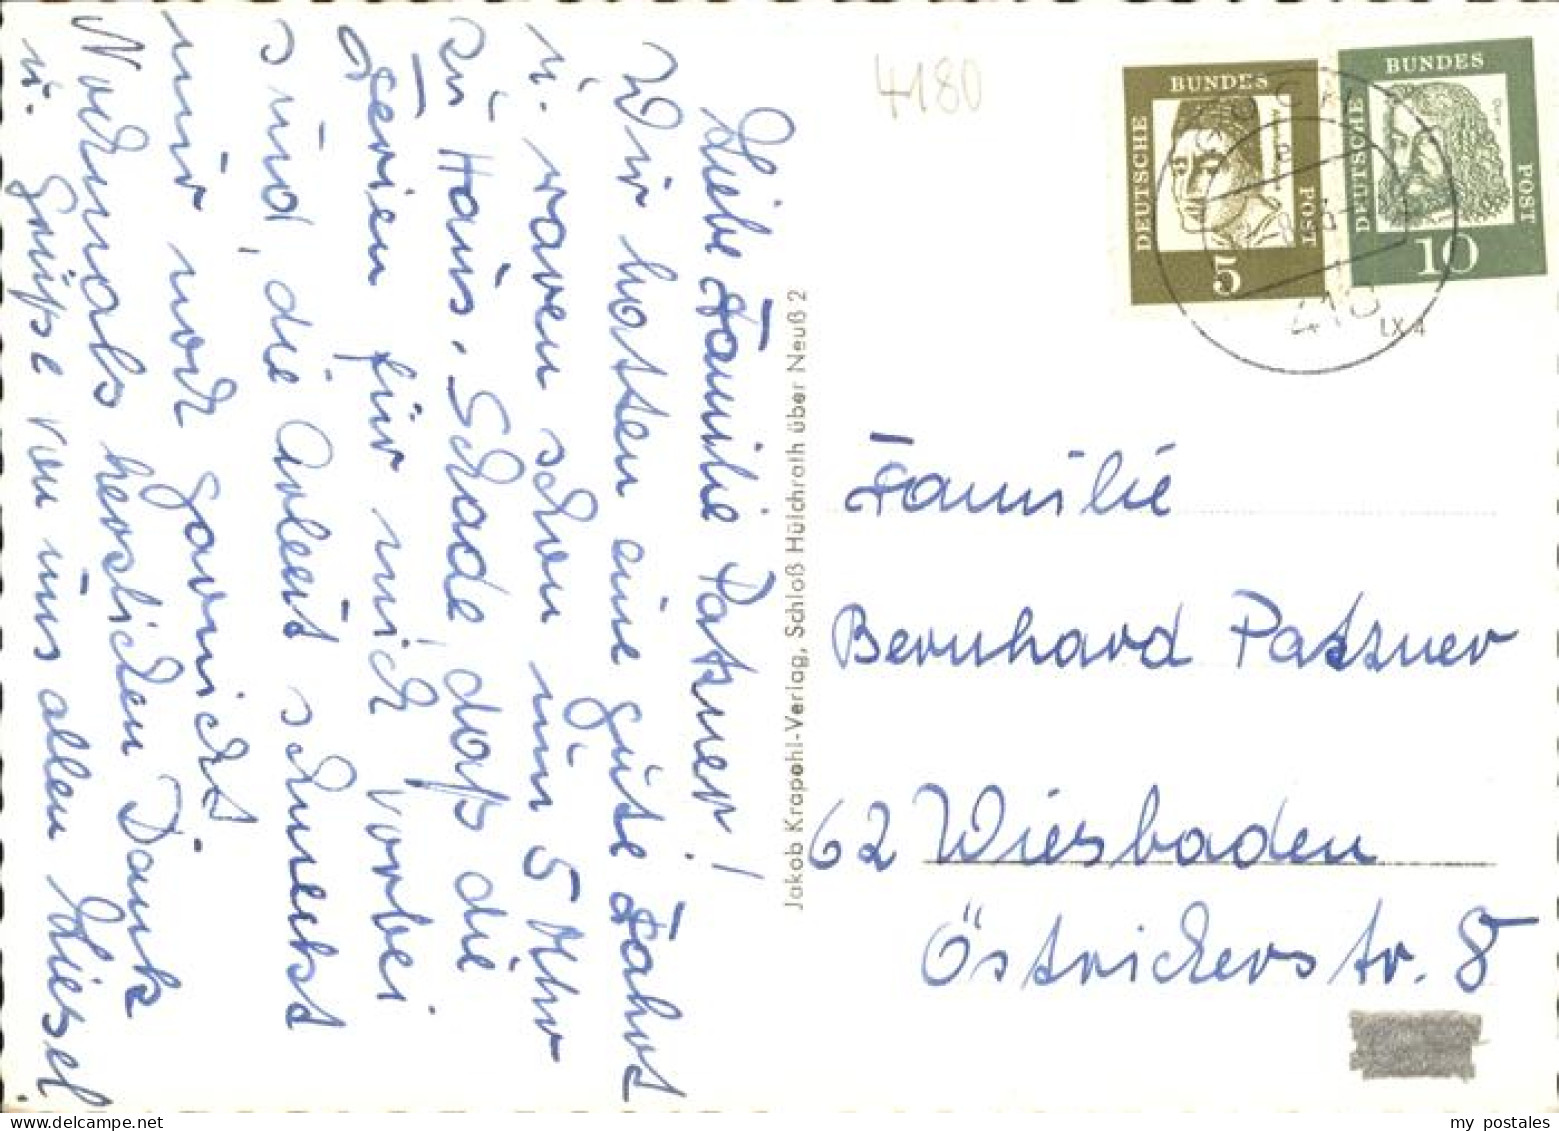 Liebe Familie Patzner!
Wir hatten eine gute Fahrt
u. waren schon um 5 Uhr
zu Haus. Schade daß die
Ferien für mich vorbei
sind, die Arbeit schmeckt
mir noch garnicht.
Nochmals herzlichen Dank
u. Grüße von uns allen Liesel
Jakob Krapohl-Verlag, Schloß Hülchrath über Neuß 2
4180
BUNDES
DEUTSCHE
POST
5
BUNDES
DEUTSCHE
POST
Dürer
10
418
Familie
Bernhard Patzner
62 Wiesbaden
Östricherstr. 8
my postales